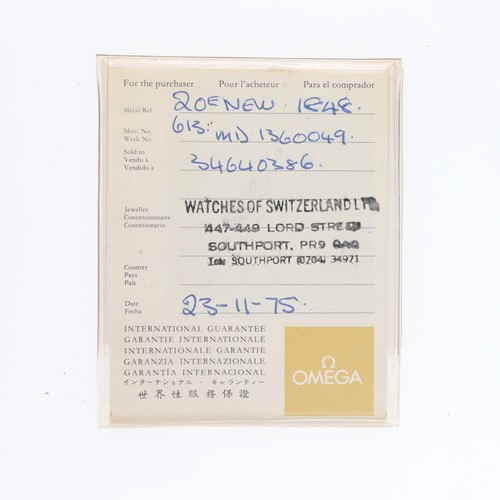 For the purchaser Pour l'acheteur Para el comprador
Metal Ref. 20E NEW . 1848.
Mov. No. 613: MD 1360049.
Werk No.
Sold to 34640386.
Vendu à
Vendido a
Jeweller WATCHES OF SWITZERLAND LTD
Concessionnaire 447-449 LORD STREET
Concesionario SOUTHPORT, PR9
SOUTHPORT (0704) 34971
Country
Pays
País
Date 23-11-75.
Fecha
INTERNATIONAL GUARANTEE
GARANTIE INTERNATIONALE
INTERNATIONALE GARANTIE
GARANZIA INTERNAZIONALE
GARANTÍA INTERNACIONAL
インターナショナル・ギャランティー
世界性服務保證
Ω
OMEGA